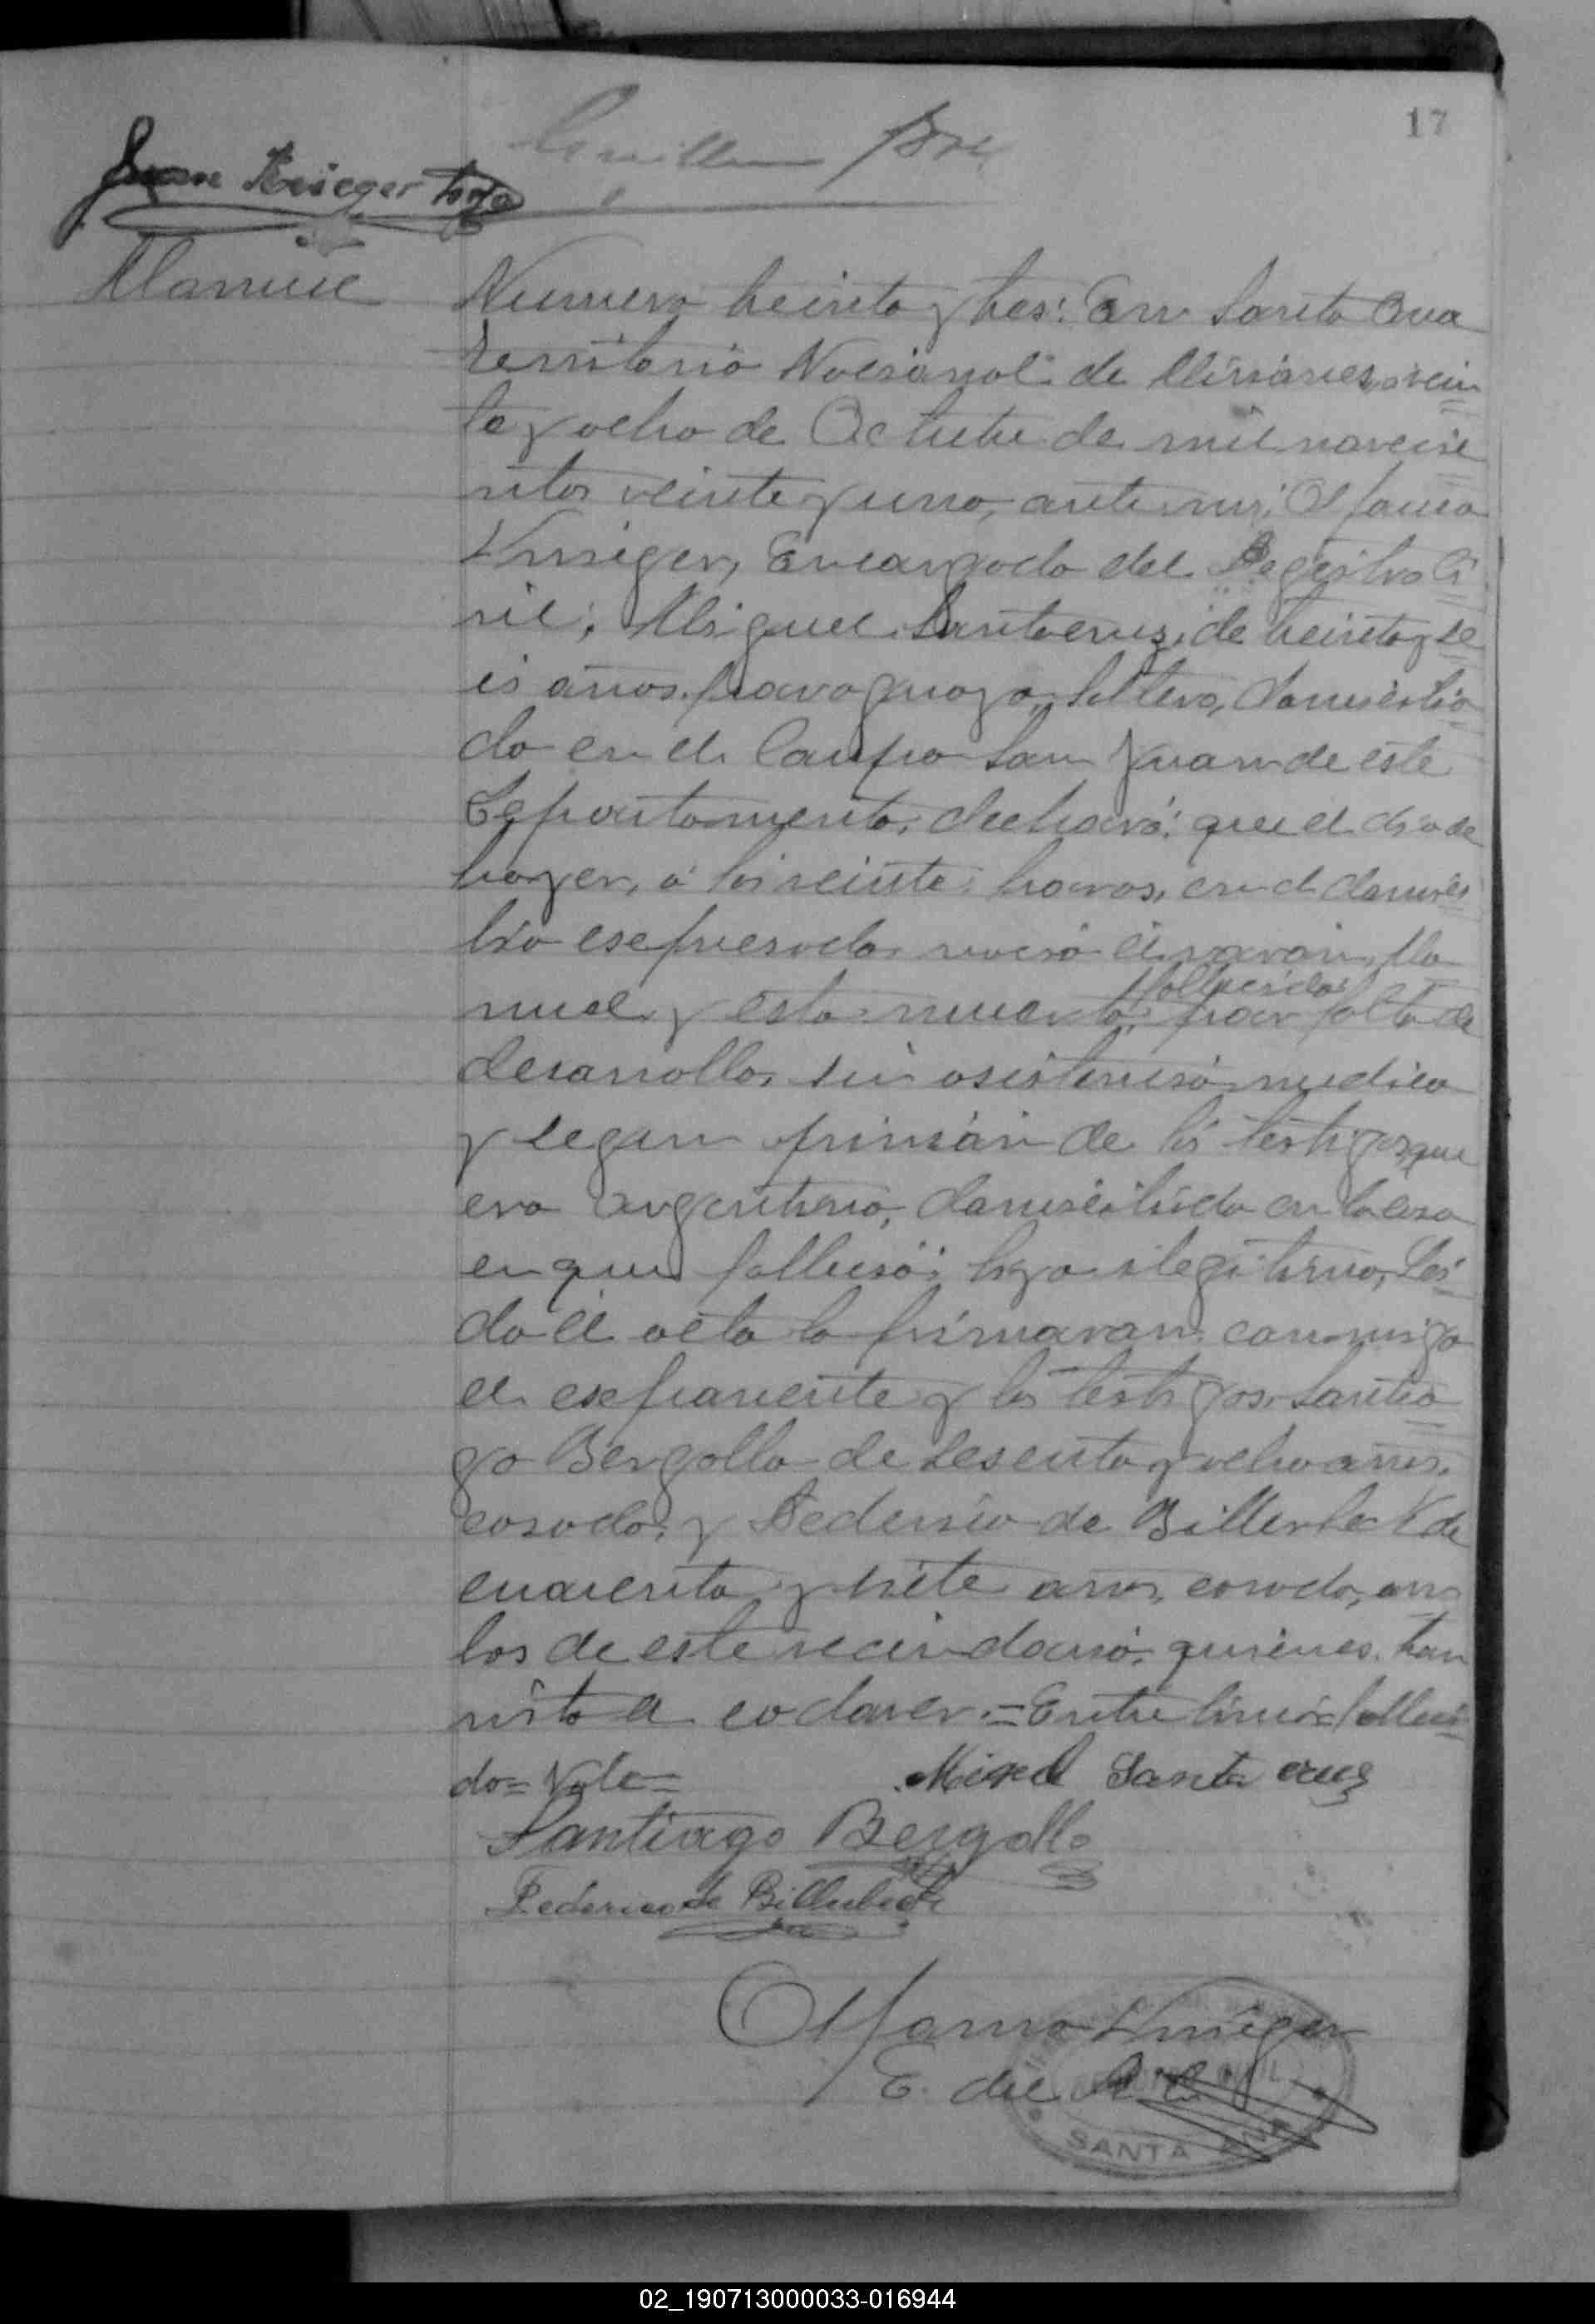 17
Juan Krieger
Manuel
Numero treinta y tres: En Santa Ana
Territorio Nacional de Misiones, a vein
te y ocho de Octubre de mil novecie
ntos veinte y uno, ante mi,
Krieger, Encargado del Registro Ci
vil, Miguel Santacruz, de treinta y se
is años, paraguayo, soltero, domicilia
do en el Campo San Juan de este
Departamento, declaró: que el dia de
hayer, á las veinte horas, en el domici
lio espresado nació el varon, Ma
nuel y esta muerto, fallecido por falta de
desarrollo, sin asistencia medica
y segun opinión de los testigos, que
era argentino, domiciliado en la casa
en que fallesió; hijo ilegitimo, Leí
do el acta la firmaron conmigo
el esponente y los testigos, Santia
go Bergallo de sesenta y ocho años,
casado, y Federico de Billerbeck de
cuarenta y siete años, casado, am
bos de este vecindario, quienes han
visto el cadaver.=Entre linias=falleci
do=Vale=
Misel Santa cruz
Santiago Bergallo
Federico de Billerbeck
Krieger
E. del R. C.
SANTA ANA
02_190713000033-016944